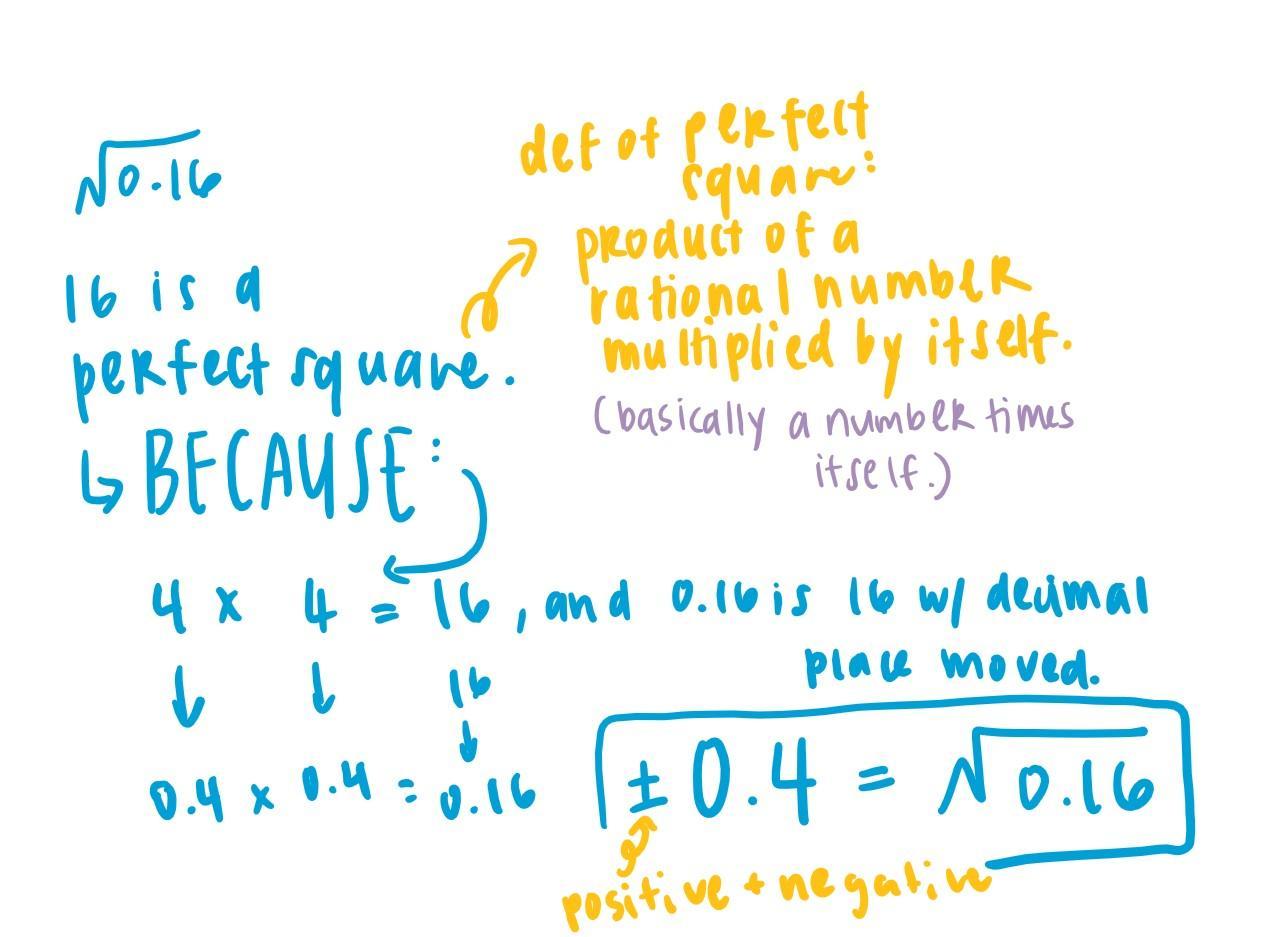 √0.16
def of perfect
square:
product of a
rational number
multiplied by itself.
(basically a number times
itself.)
16 is a
perfect square.
↳ BECAUSE:
4 x 4 = 16, and 0.16 is 16 w/ decimal
place moved.
↓ ↓ 16
↓
0.4 x 0.4 = 0.16
± 0.4 = √0.16
positive + negative